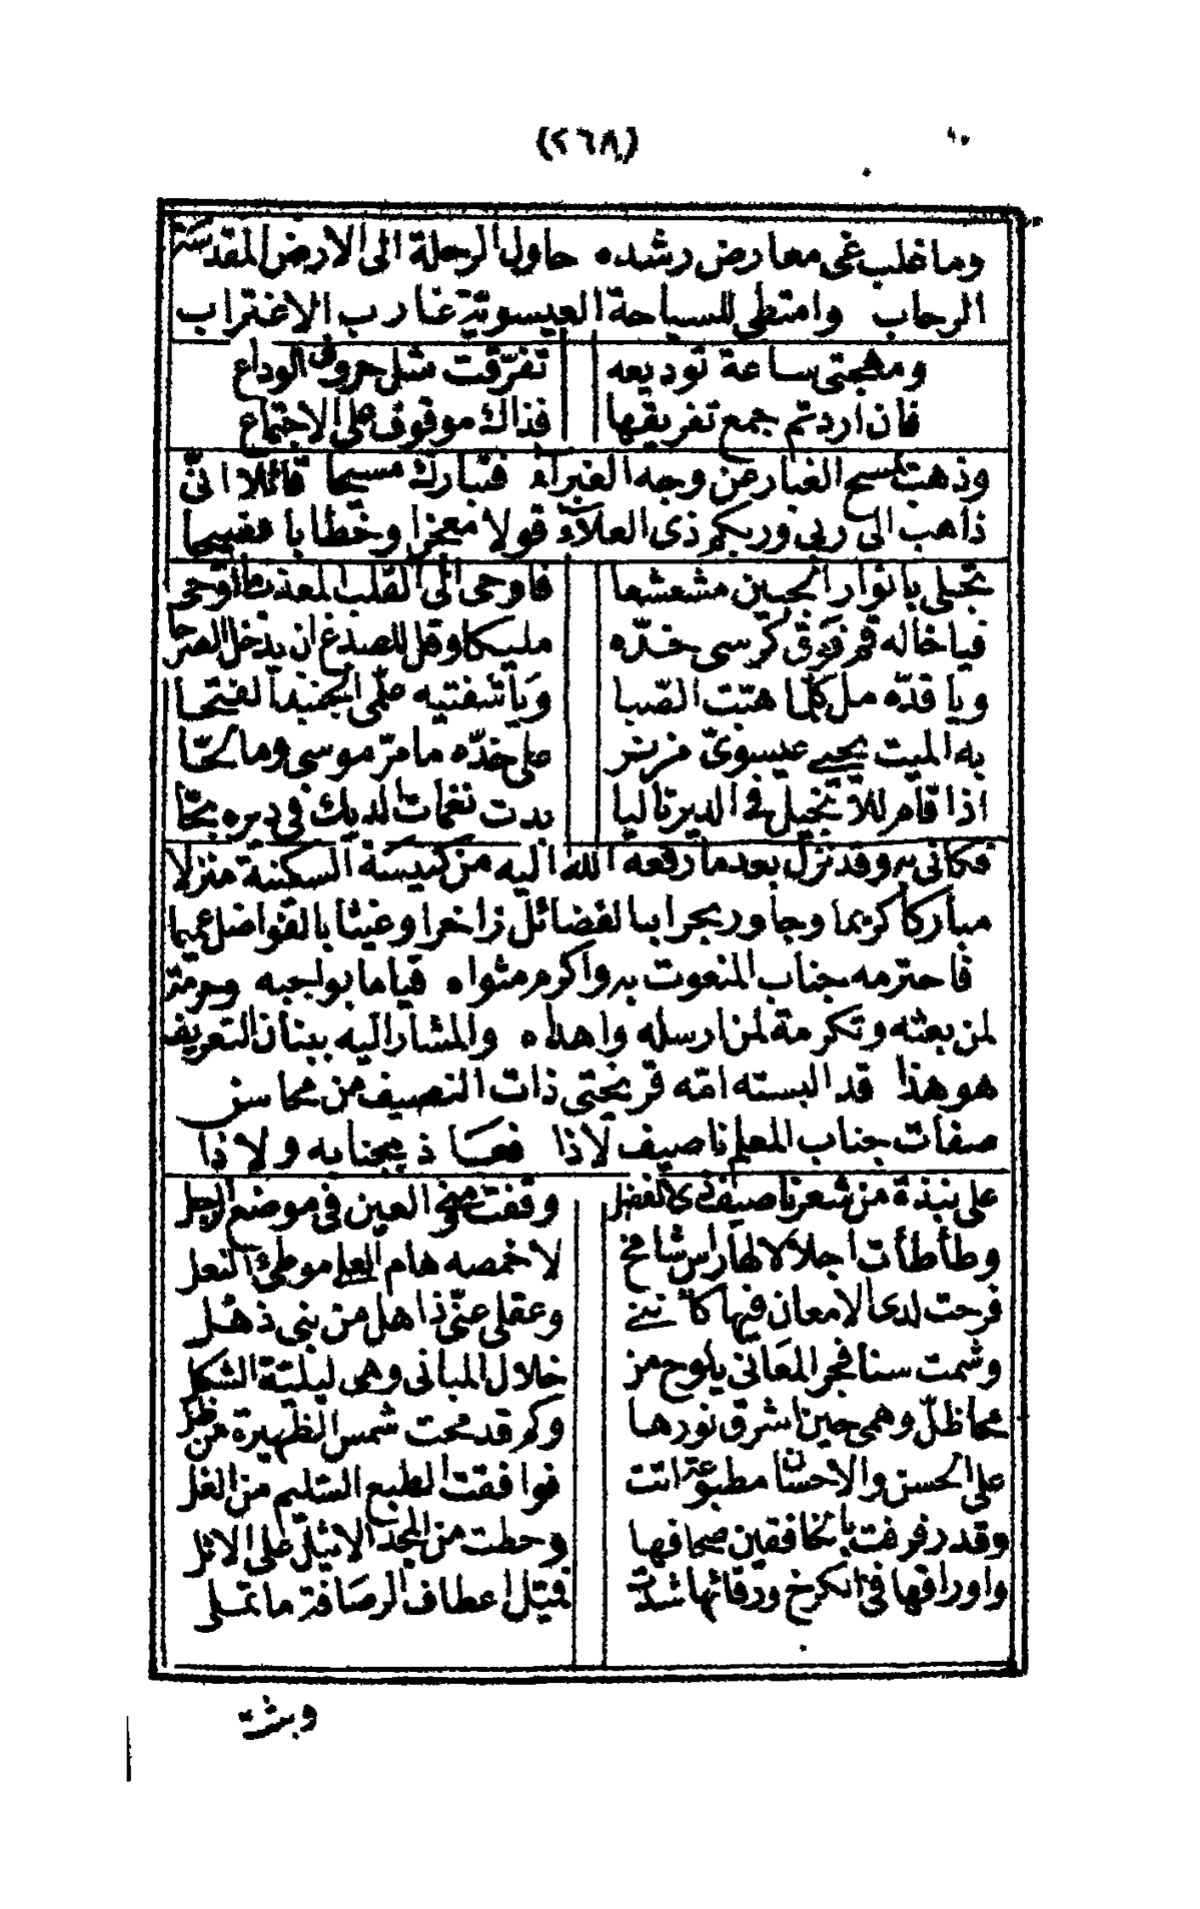 (٢٦٨)
وما خلب غى معارض رشده حاول الرحلة الى الارض المقدسة
الرحاب وامتطى للسياحة العيسوية غارب الاغتراب
ومهجتى ساعة توديعه تفرّقت مثل حروف الوداع
فان اردتم جمع تفريقها فذاك موقوف على الاجتماع
وذهبت لمسح الغبار عن وجه الغبراء فتبارك مسيحا قائلا انّى
ذاهب الى ربى وربكم ذى العلاء قولا معجزا وخطابا فصيحا
تجلى بانوار الجبين مشعشعا فاوحى الى القلب المعذب ما اوحى
فيا خاله قم فوق كرسى خدّه مليكا وقل للصدغ ان يدخل الصرحا
ويا قدّه مل كلّما هبّت الصّبا ويا شفتيه علّمى الجنبذ الفتحا
به الميت يحيى عيسوىّ مزنر على خدّه ما مرّ موسى وما لحّا
اذا قام للا تجيل فى الدير تاليا بدت نغمات الديك فى ديره بحّا
فكانى به وقد نزل بعدما رفعه الله اليه من كنيسة السكنية منزلا
مباركا كريما وجاور بحرا بالفضائل زاخرا وغيثا بالفواضل عميما
فاحترمه جناب المنعوت به واكرم مثواه قياما بواجبه وحرمة
لمن بعثه وتكرمة لمن ارسله واهداه والمشار اليه ببنان التعريف
هو هذا قد البسته امّه قريحتى ذات النصيف من محاسن
صفات جناب المعلم ناصيف لاذا فعاذ بجنابه ولاذا
على نبذة من شعر ناصيف ذى الفضل وقفت منى العين فى موضع الرجل
وطأطأت اجلالا لها راس شامخ لاخمصه هام العلى موطئ النعل
فرحت لدى الامعان فيها كأننى وعقلى عنّى ذاهل من بنى ذهل
وشمت سنا فجر المعانى يلوح من خلال المبانى وهى ليليّة الشكل
محا ظلّ وهمى حين اشرق نورها وكم قد محت شمس الظهيرة من ظلّ
على الحسن والاحسان مطبوعة اتت فوافقت الطبع السليم من الغل
وقد رفرفت بالخافقين صحافها وحطت من المجد الاثيل على الاثل
واوراقها فى الكرخ ورقائها شدت فميّل اعطاف الرصافة ما تملى
وبثت